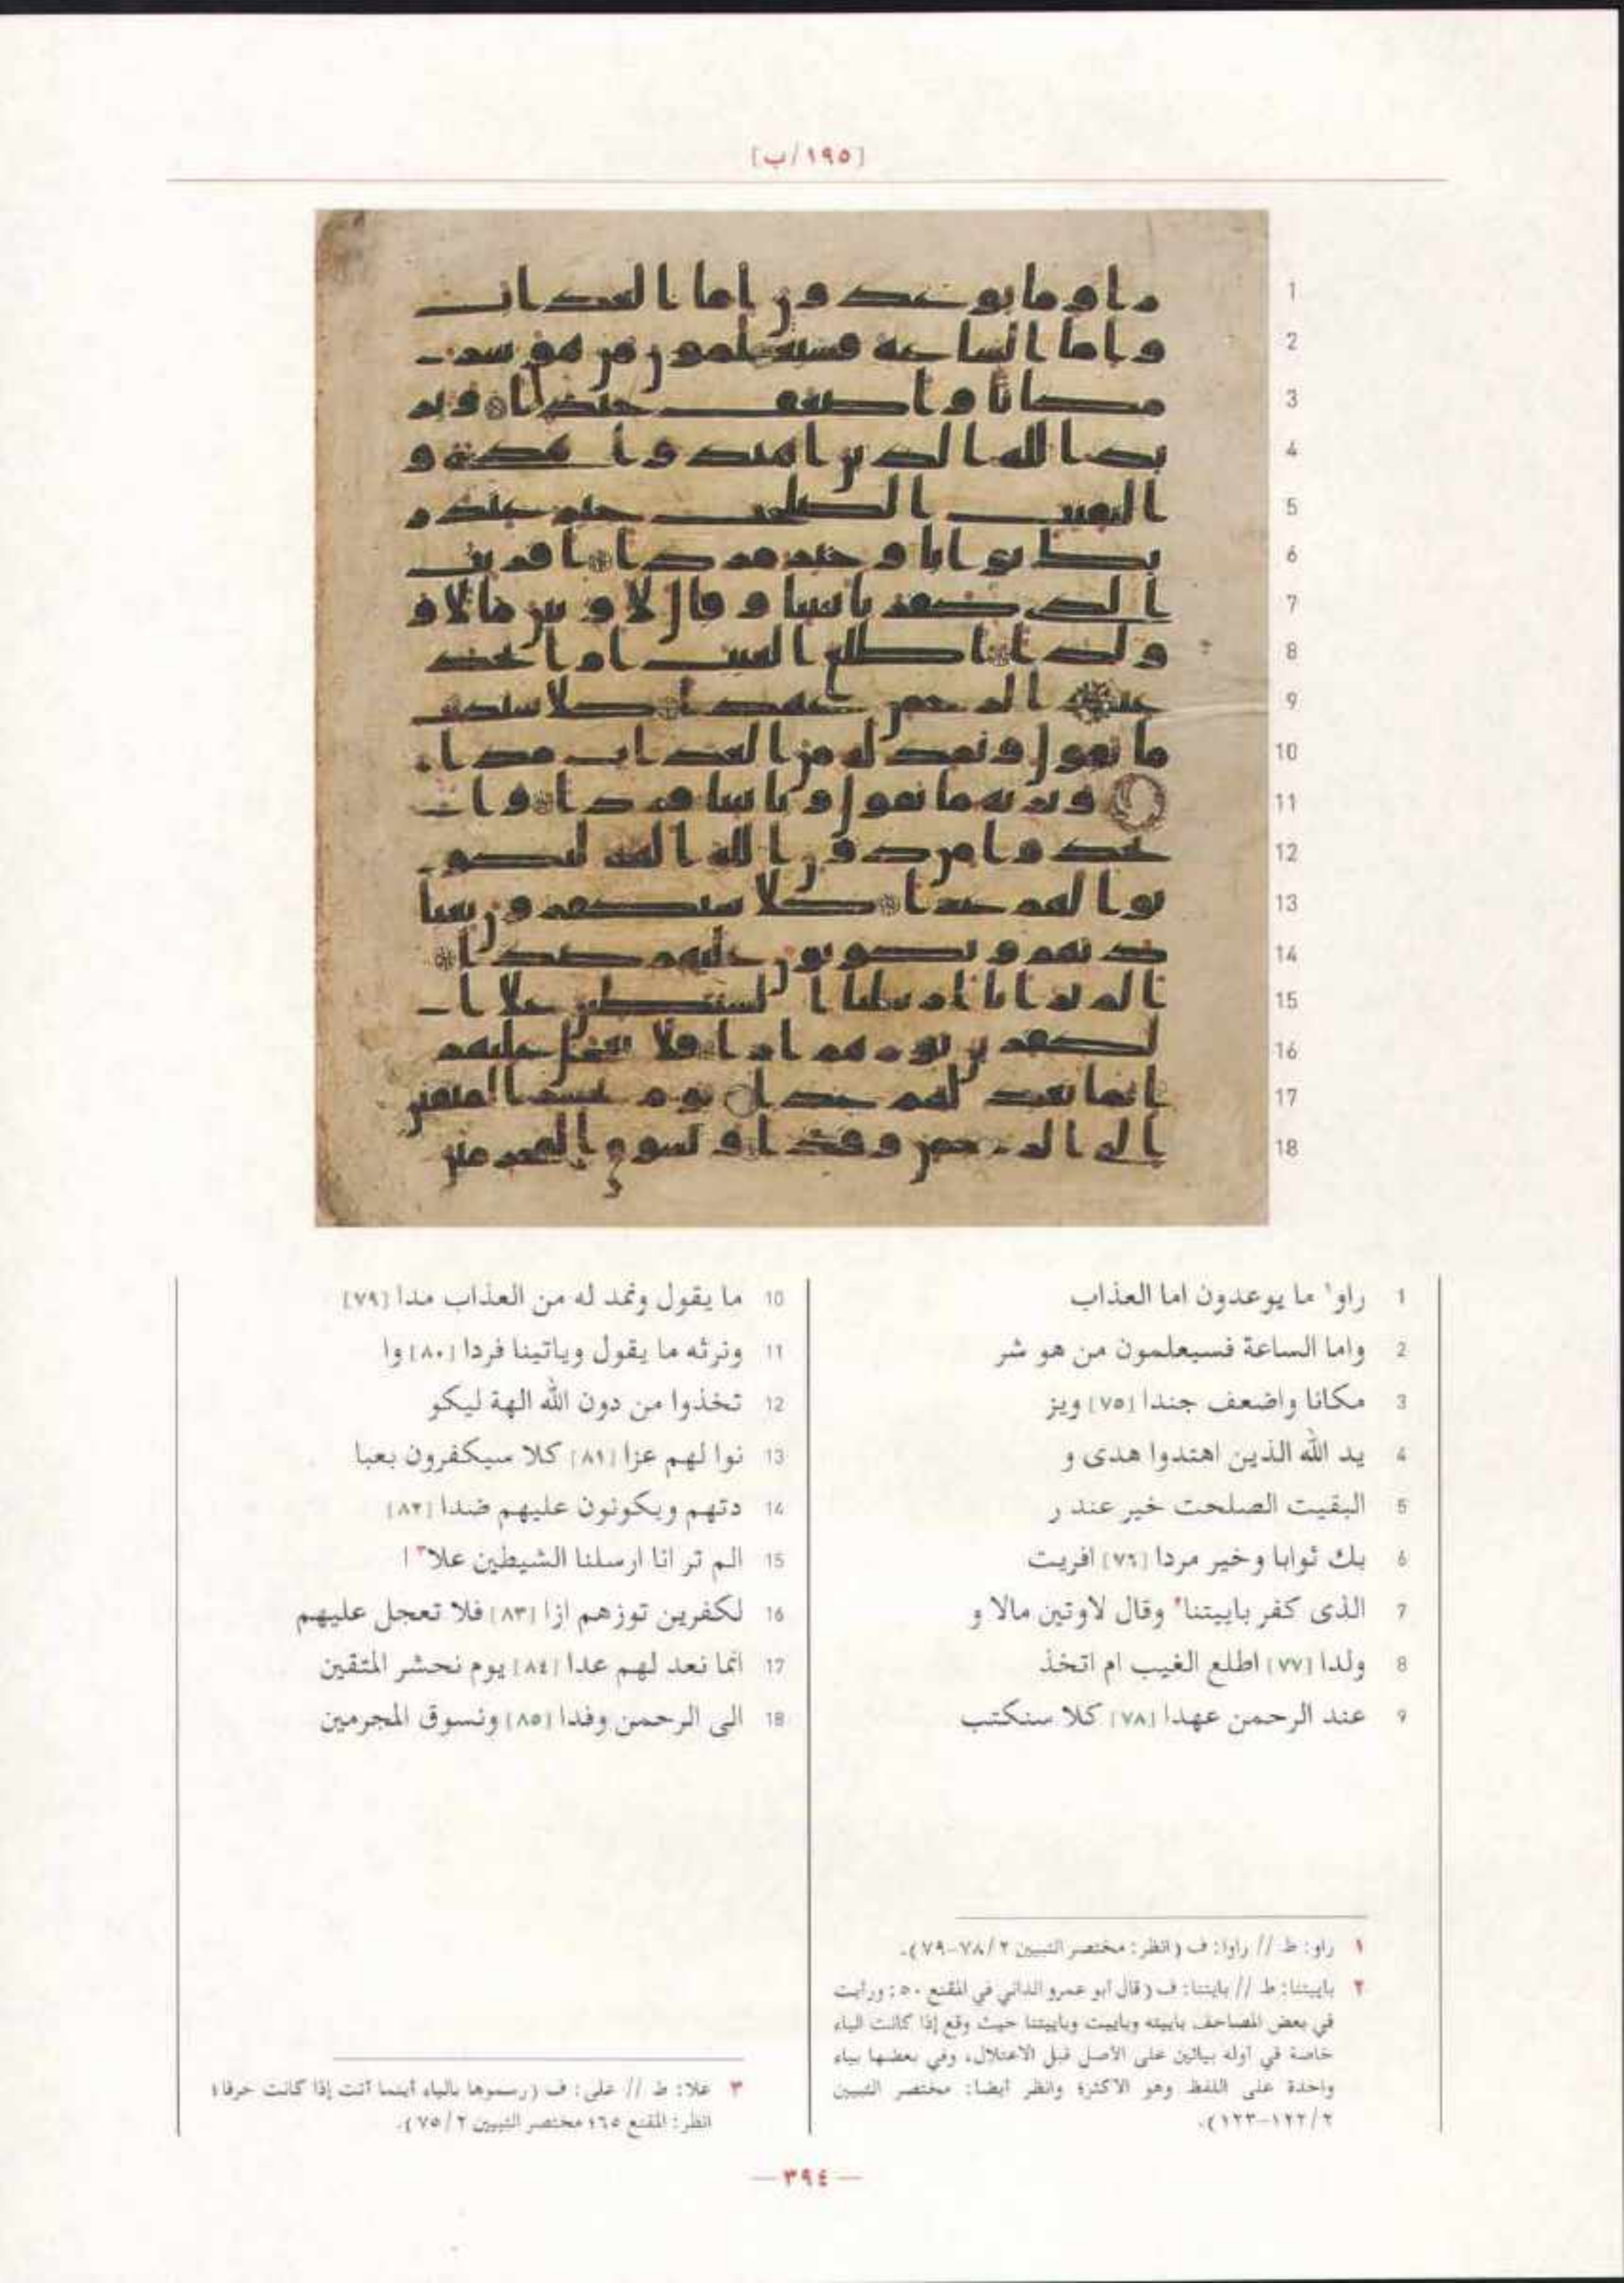 [١٩٥/ب]
1
2
3
4
5
6
7
8
9
10
11
12
13
14
15
16
17
18
1 راو١ ما يوعدون اما العذاب
2 واما الساعة فسيعلمون من هو شر
3 مكانا واضعف جندا [٧٥] ويز
4 يد الله الذين اهتدوا هدى و
5 البقيت الصلحت خير عند ر
6 بك ثوابا وخير مردا [٧٦] افريت
7 الذى كفر باييتنا٢ وقال لاوتين مالا و
8 ولدا [٧٧] اطلع الغيب ام اتخذ
9 عند الرحمن عهدا [٧٨] كلا سنكتب
10 ما يقول ونمد له من العذاب مدا [٧٩]
11 ونرثه ما يقول وياتينا فردا [٨٠] وا
12 تخذوا من دون الله الهة ليكو
13 نوا لهم عزا [٨١] كلا سيكفرون بعبا
14 دتهم ويكونون عليهم ضدا [٨٢]
15 الم تر انا ارسلنا الشيطين علا٣ ا
16 لكفرين توزهم ازا [٨٣] فلا تعجل عليهم
17 انما نعد لهم عدا [٨٤] يوم نحشر المتقين
18 الى الرحمن وفدا [٨٥] ونسوق المجرمين
١ راو: ط // راوا: ف (انظر: مختصر التبيين ٢/ ٧٨-٧٩).
٢ باييتنا: ط // بايتنا: ف (قال أبو عمرو الداني في المقنع ٥٠: ورأيت
في بعض المصاحف باييته وباييت وباييتنا حيث وقع إذا كانت الباء
خاصة في أوله بيائين على الأصل قبل الاعتلال، وفي بعضها بياء
واحدة على اللفظ وهو الأكثر؛ وانظر أيضا: مختصر التبيين
٢/ ١٢٢-١٢٣).
٣ علا: ط // على: ف (رسموها بالياء أينما أتت إذا كانت حرفا؛
انظر: المقنع ٦٥؛ مختصر التبيين ٢/ ٧٥).
— ٣٩٤ —